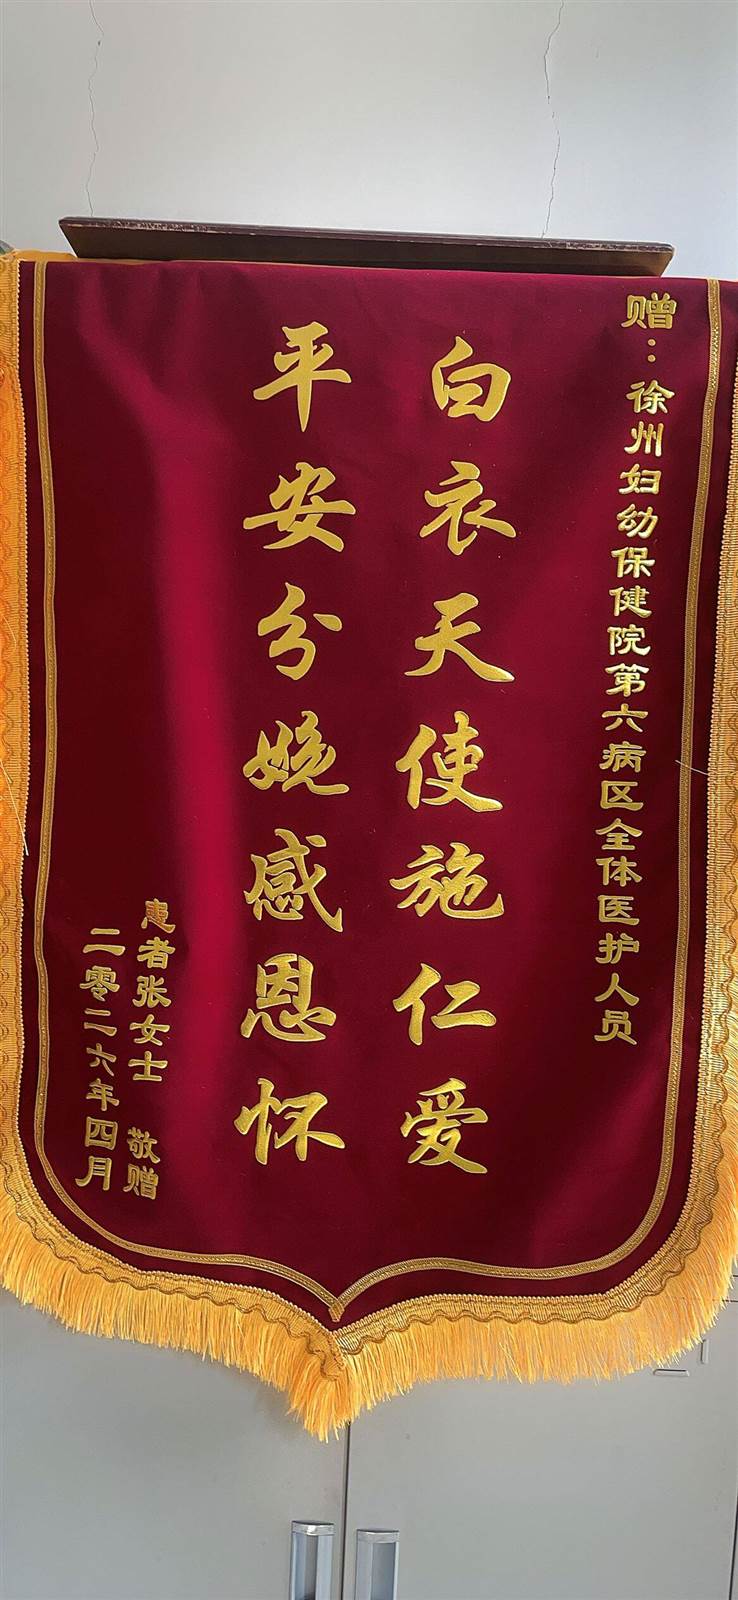 赠：徐州妇幼保健院第六病区全体医护人员
白衣天使施仁爱
平安分娩感恩怀
患者张女士 敬赠
二零二六年四月